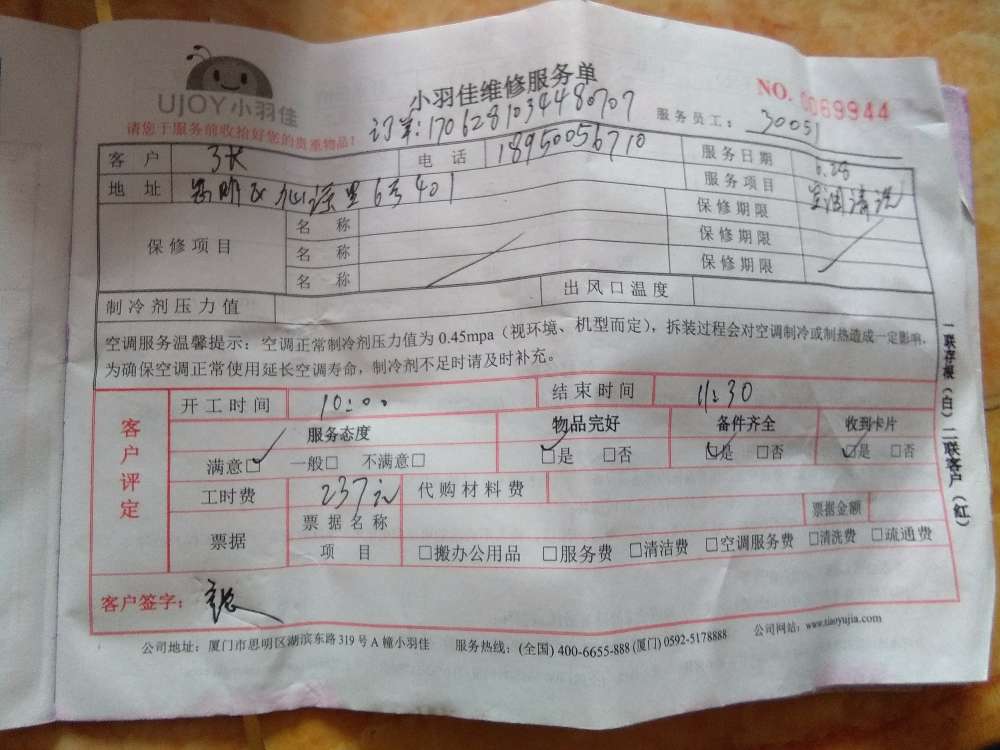 UJOY小羽佳
小羽佳维修服务单
NO. 0069944
请您于服务前收拾好您的贵重物品!
订单:1706281034480707
服务员工: 30051
客户 电话 18950056710 服务日期 6.28
地址 思明区 里6号401 服务项目 空调清洗
保修项目 名称 保修期限
名称 保修期限
名称 保修期限
制冷剂压力值 出风口温度
空调服务温馨提示:空调正常制冷剂压力值为 0.45mpa(视环境、机型而定),拆装过程会对空调制冷或制热造成一定影响,
为确保空调正常使用延长空调寿命,制冷剂不足时请及时补充。
客户评定
开工时间 10:00 结束时间 11:30
服务态度 物品完好 备件齐全 收到卡片
满意☑ 一般□ 不满意□ ☑是 □否 ☑是 □否 ☑是 □否
工时费 237元 代购材料费
票据 票据名称 票据金额
项目 □搬办公用品 □服务费 □清洁费 □空调服务费 □清洗费 □疏通费
客户签字:
公司地址:厦门市思明区湖滨东路319号A幢小羽佳 服务热线:(全国) 400-6655-888 (厦门) 0592-5178888 公司网站:www.xiaoyujia.com
一联存根(白)二联客户(红)